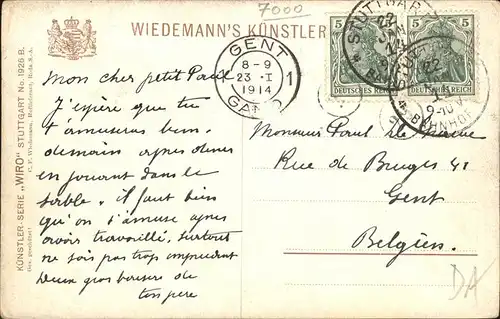 7000
WIEDEMANN'S KÜNSTLER
GENT
8-9
23 I
1914
1
STUTTGART
22
JAN
BAHNHOF
22
9-10
BAHNHOF
5 5
5 5
DEUTSCHES REICH DEUTSCHES REICH
Mon cher petit Paul
J'espère que tu
t'amuseras bien
demain apres diner
en jouant dans le
sable. il faut bien
qu'on s'amuse apres
avoir travaillé, surtout
ne sois pas trop imprudent
Deux gros baisers de
ton pere
Monsieur Paul
Rue de Bruges 41
Gent
Belgien.
DA
KÜNSTLER-SERIE „WIRO" STUTTGART No. 1926 B.